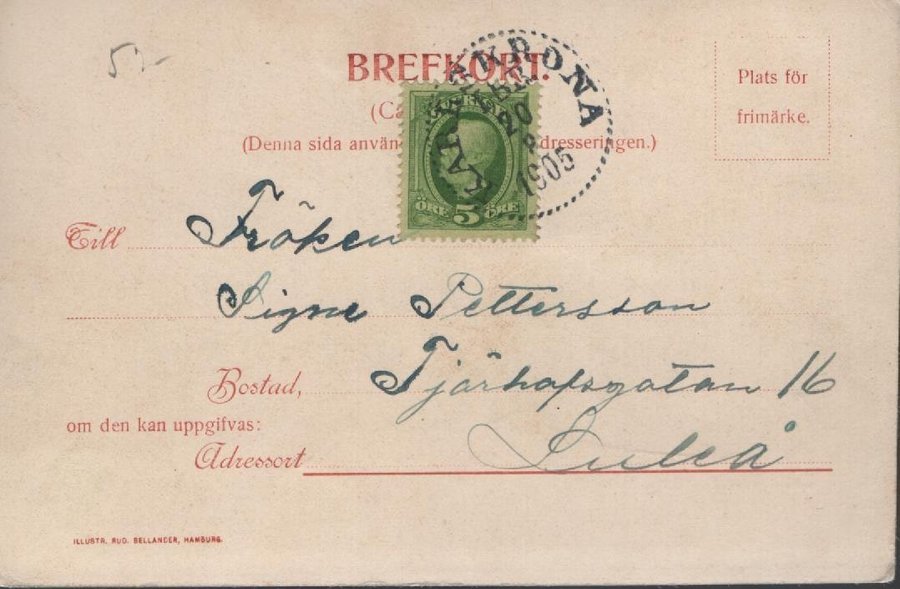 5:-
BREFKORT.
Plats för
frimärke.
(Denna sida dresseringen.)
KARLSKRONA
20
8
1905
ÖRE 5 ÖRE
Till Fröken
Signe Pettersson
Bostad, Tjärhofsgatan 16
om den kan uppgifvas:
Adressort Luleå
ILLUSTR. RUD. BELLANDER, HAMBURG.